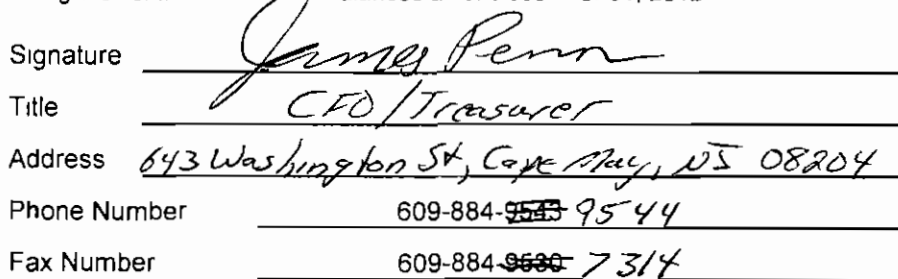 Signature James Penn
Title CFO/Treasurer
Address 643 Washington St, Cape May, NJ 08204
Phone Number 609-884-9543 9544
Fax Number 609-884-9630 7314